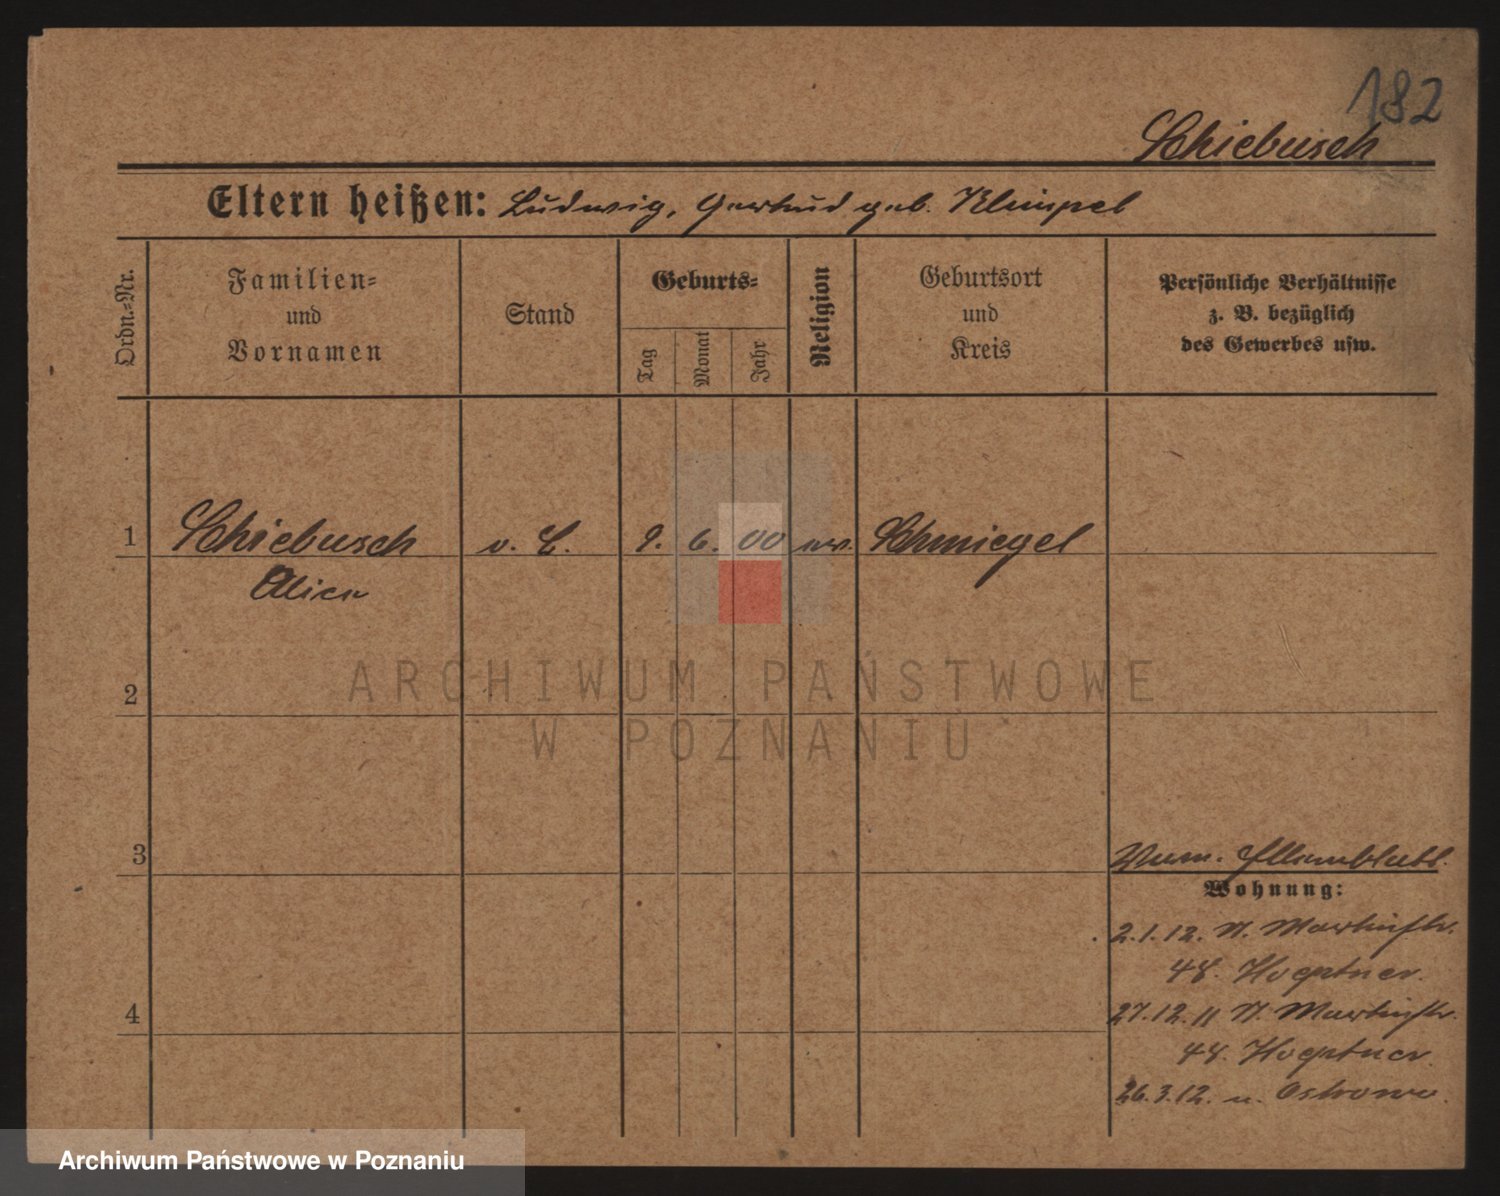 182
Schiebusch
Eltern heißen: Ludwig, Gertrud geb. Klimpel
Ordn.-Nr.
Familien-
und
Vornamen
Stand
Geburts-
Tag
Monat
Jahr
Religion
Geburtsort
und
Kreis
Persönliche Verhältnisse
z. B. bezüglich
des Gewerbes usw.
1
Schiebusch
o. E.
9. 6. 00
ev.
Schmiegel
Alice
ARCHIWUM PAŃSTWOWE
W POZNANIU
2
3
Wohnung:
2.1.12. St. Martinstr.
48. Hoeptner.
4
27.12.11 St. Martinstr.
48. Hoeptner.
26.3.12. n. Ostrowo.
Archiwum Państwowe w Poznaniu